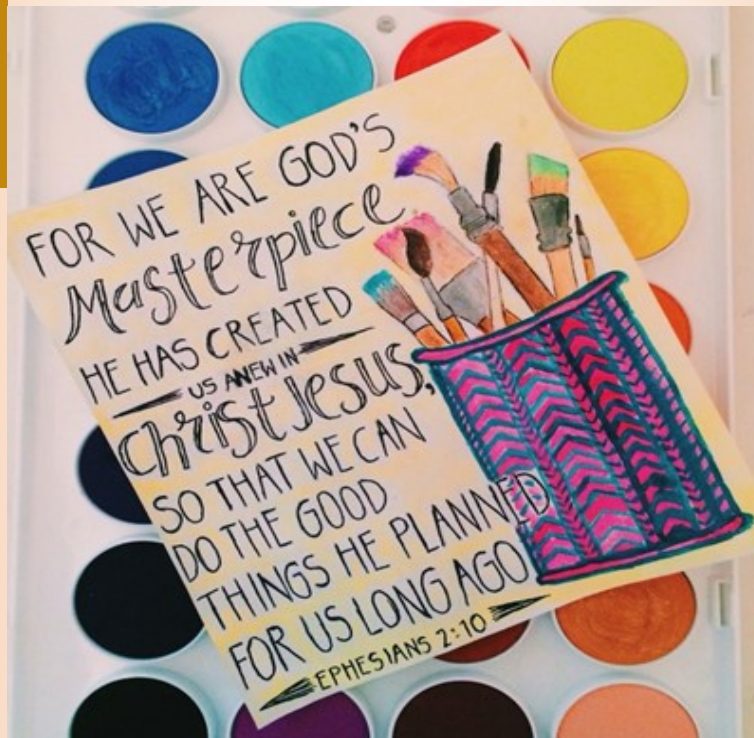 FOR WE ARE GOD'S
Masterpiece
HE HAS CREATED
US ANEW IN
Christ Jesus,
SO THAT WE CAN
DO THE GOOD
THINGS HE PLANNED
FOR US LONG AGO
EPHESIANS 2:10